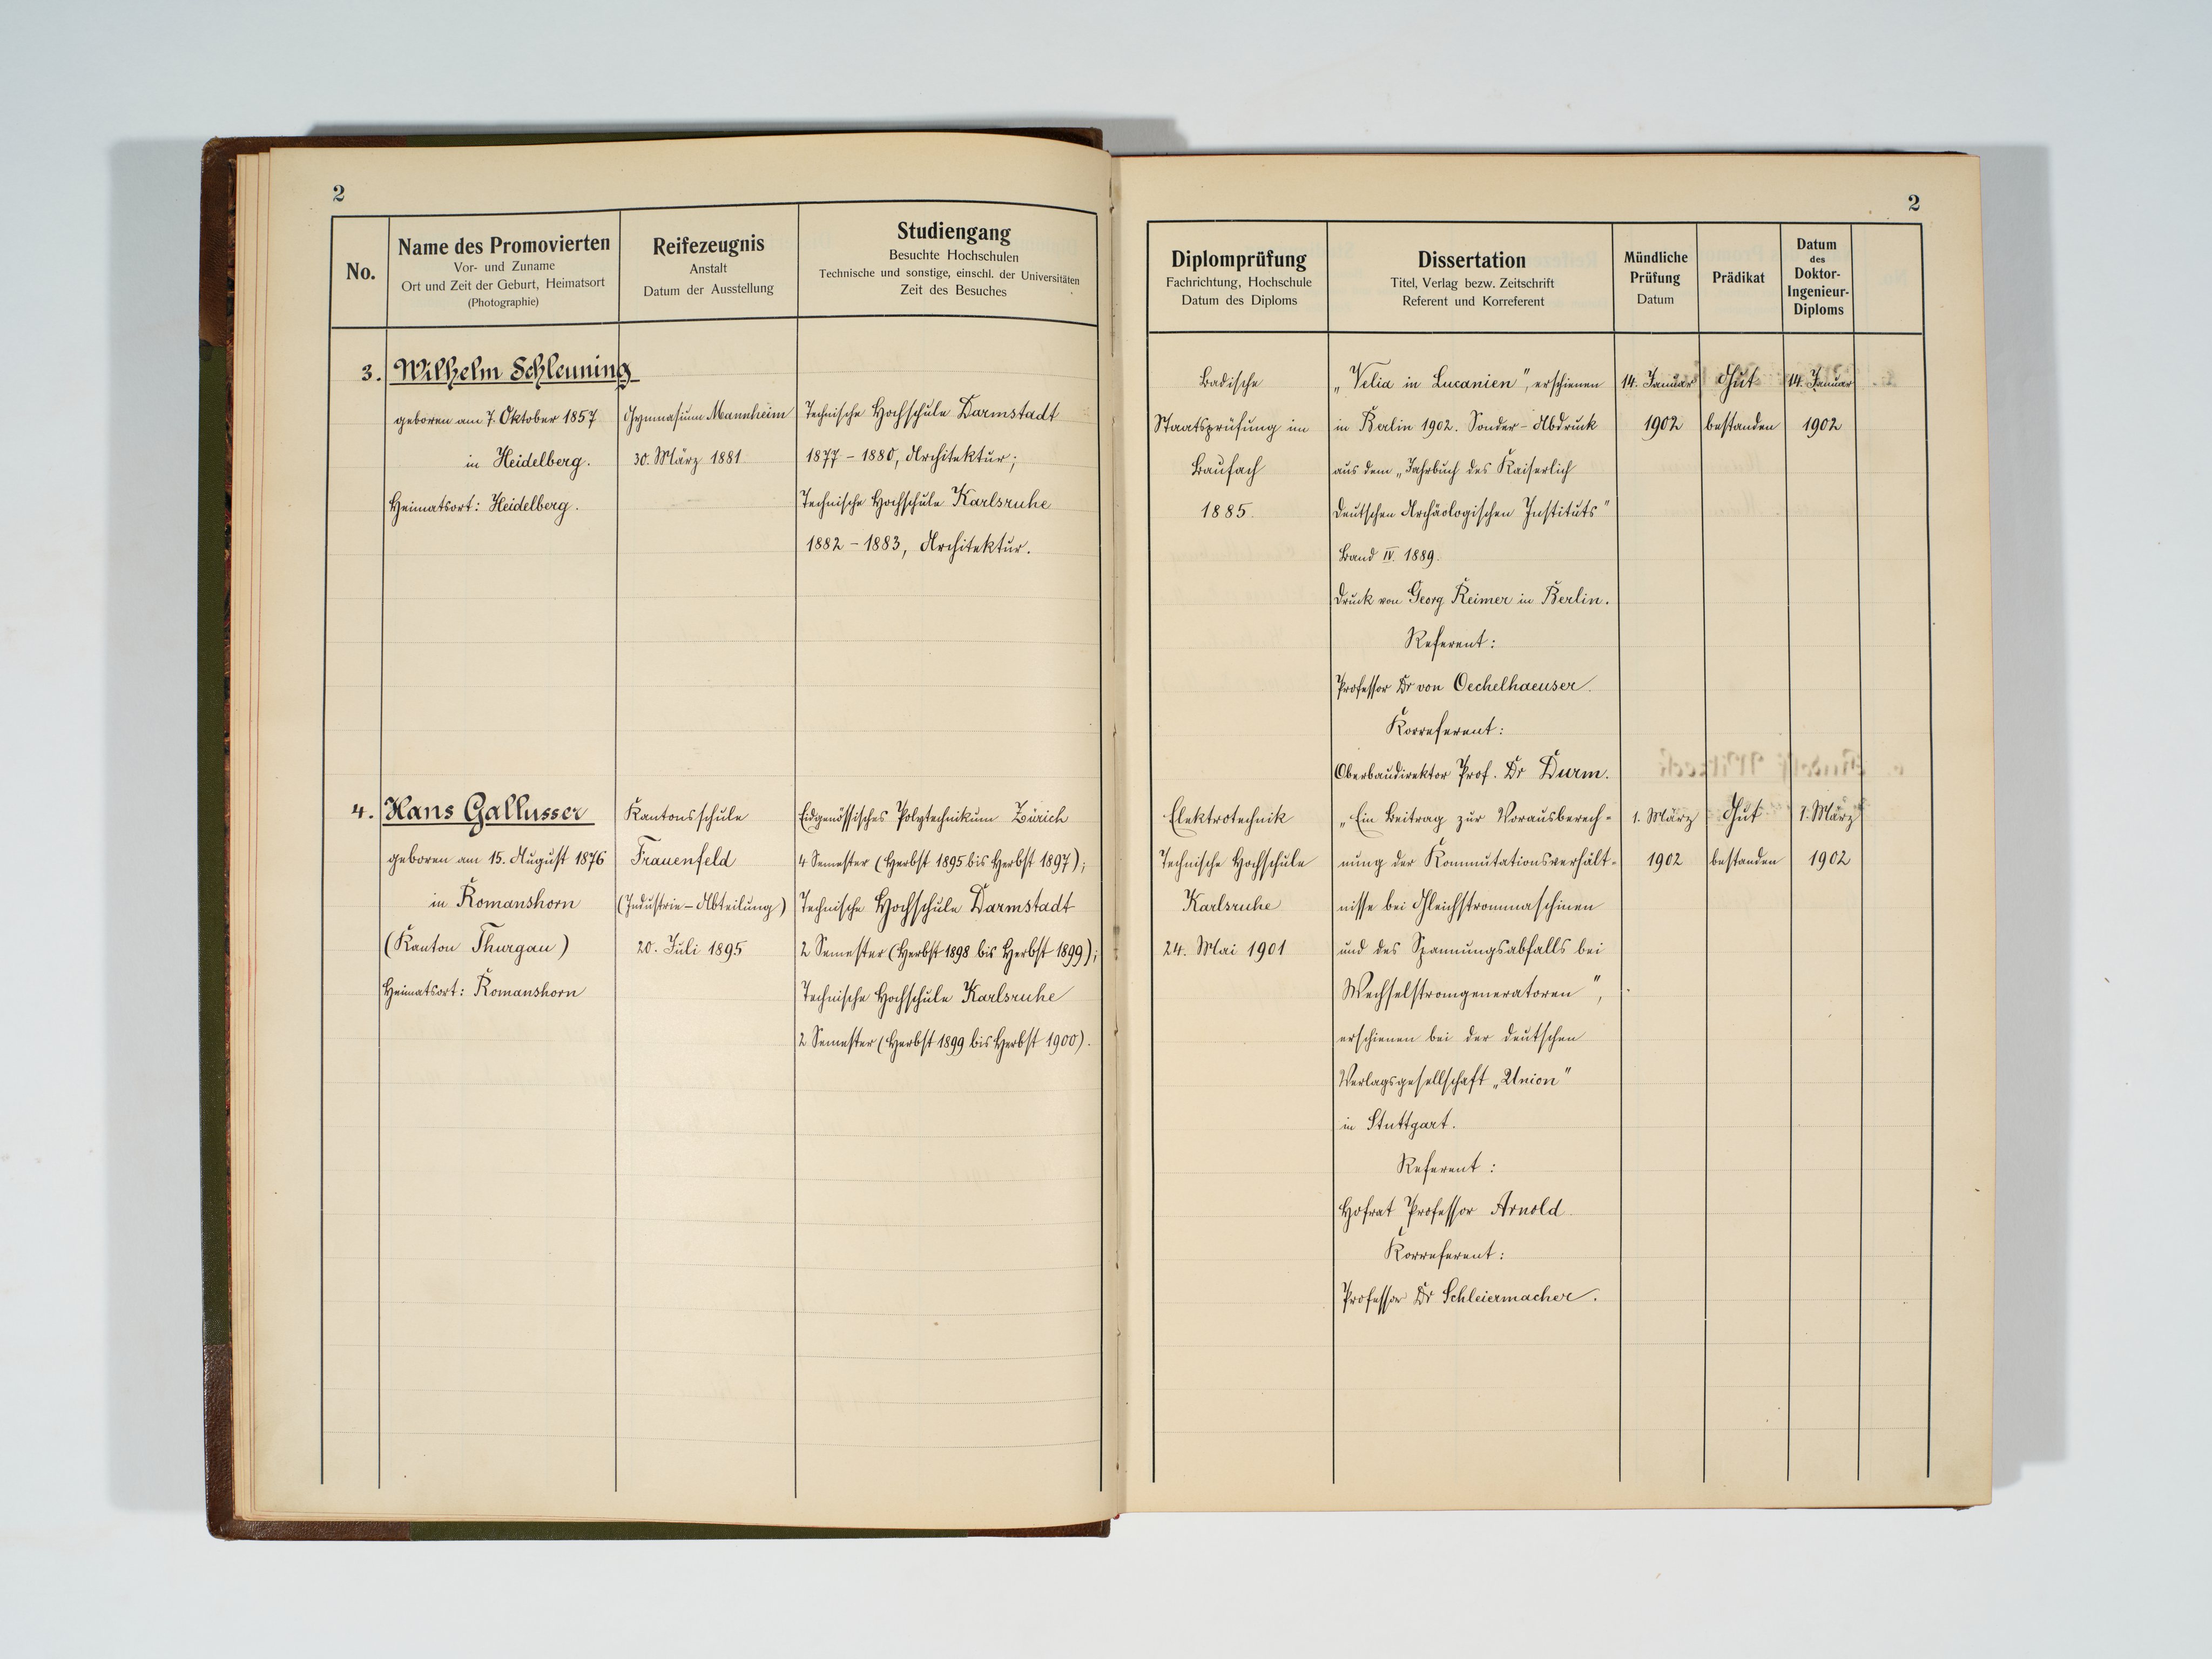 2
No.
Name des Promovierten
Vor- und Zuname
Ort und Zeit der Geburt, Heimatsort
(Photographie)
Reifezeugnis
Anstalt
Datum der Ausstellung
Studiengang
Besuchte Hochschulen
Technische und sonstige, einschl. der Universitäten
Zeit des Besuches
3.
Wilhelm Schleuning
geboren am 7. Oktober 1857
in Heidelberg.
Heimatsort: Heidelberg.
Gymnasium Mannheim
30. März 1881
Technische Hochschule Darmstadt
1877 - 1880, Architektur;
Technische Hochschule Karlsruhe
1882 - 1883, Architektur.
4.
Hans Gallusser
geboren am 15. August 1876
in Romanshorn
(Kanton Thurgau)
Heimatsort: Romanshorn
Kantonsschule
Frauenfeld
(Industrie-Abteilung)
20. Juli 1895
Eidgenössisches Polytechnikum Zürich
4 Semester (Herbst 1895 bis Herbst 1897);
Technische Hochschule Darmstadt
2 Semester (Herbst 1898 bis Herbst 1899);
Technische Hochschule Karlsruhe
2 Semester (Herbst 1899 bis Herbst 1900).
2
Diplomprüfung
Fachrichtung, Hochschule
Datum des Diploms
Dissertation
Titel, Verlag bezw. Zeitschrift
Referent und Korreferent
Mündliche
Prüfung
Datum
Prädikat
Datum
des
Doktor-
Ingenieur-
Diploms
Badische
Staatsprüfung im
Baufach
1885.
„Velia in Lucanien", erschienen
in Berlin 1902. Sonder-Abdruck
aus dem „Jahrbuch des Kaiserlich
Deutschen Archäologischen Instituts"
Band IV. 1889.
Druck von Georg Reimer in Berlin.
Referent:
Professor Dr von Oechelhaeuser.
Korreferent:
Oberbaudirektor Prof. Dr Durm.
14. Januar
1902
Gut
bestanden
14. Januar
1902
Elektrotechnik
Technische Hochschule
Karlsruhe
24. Mai 1901
„Ein Beitrag zur Vorausberech-
nung der Kommutationsverhält-
nisse bei Gleichstrommaschinen
und des Spannungsabfalls bei
Wechselstromgeneratoren",
erschienen bei der deutschen
Verlagsgesellschaft „Union"
in Stuttgart.
Referent:
Hofrat Professor Arnold.
Korreferent:
Professor Dr Schleiermacher.
1. März
1902
Gut
bestanden
1. März
1902